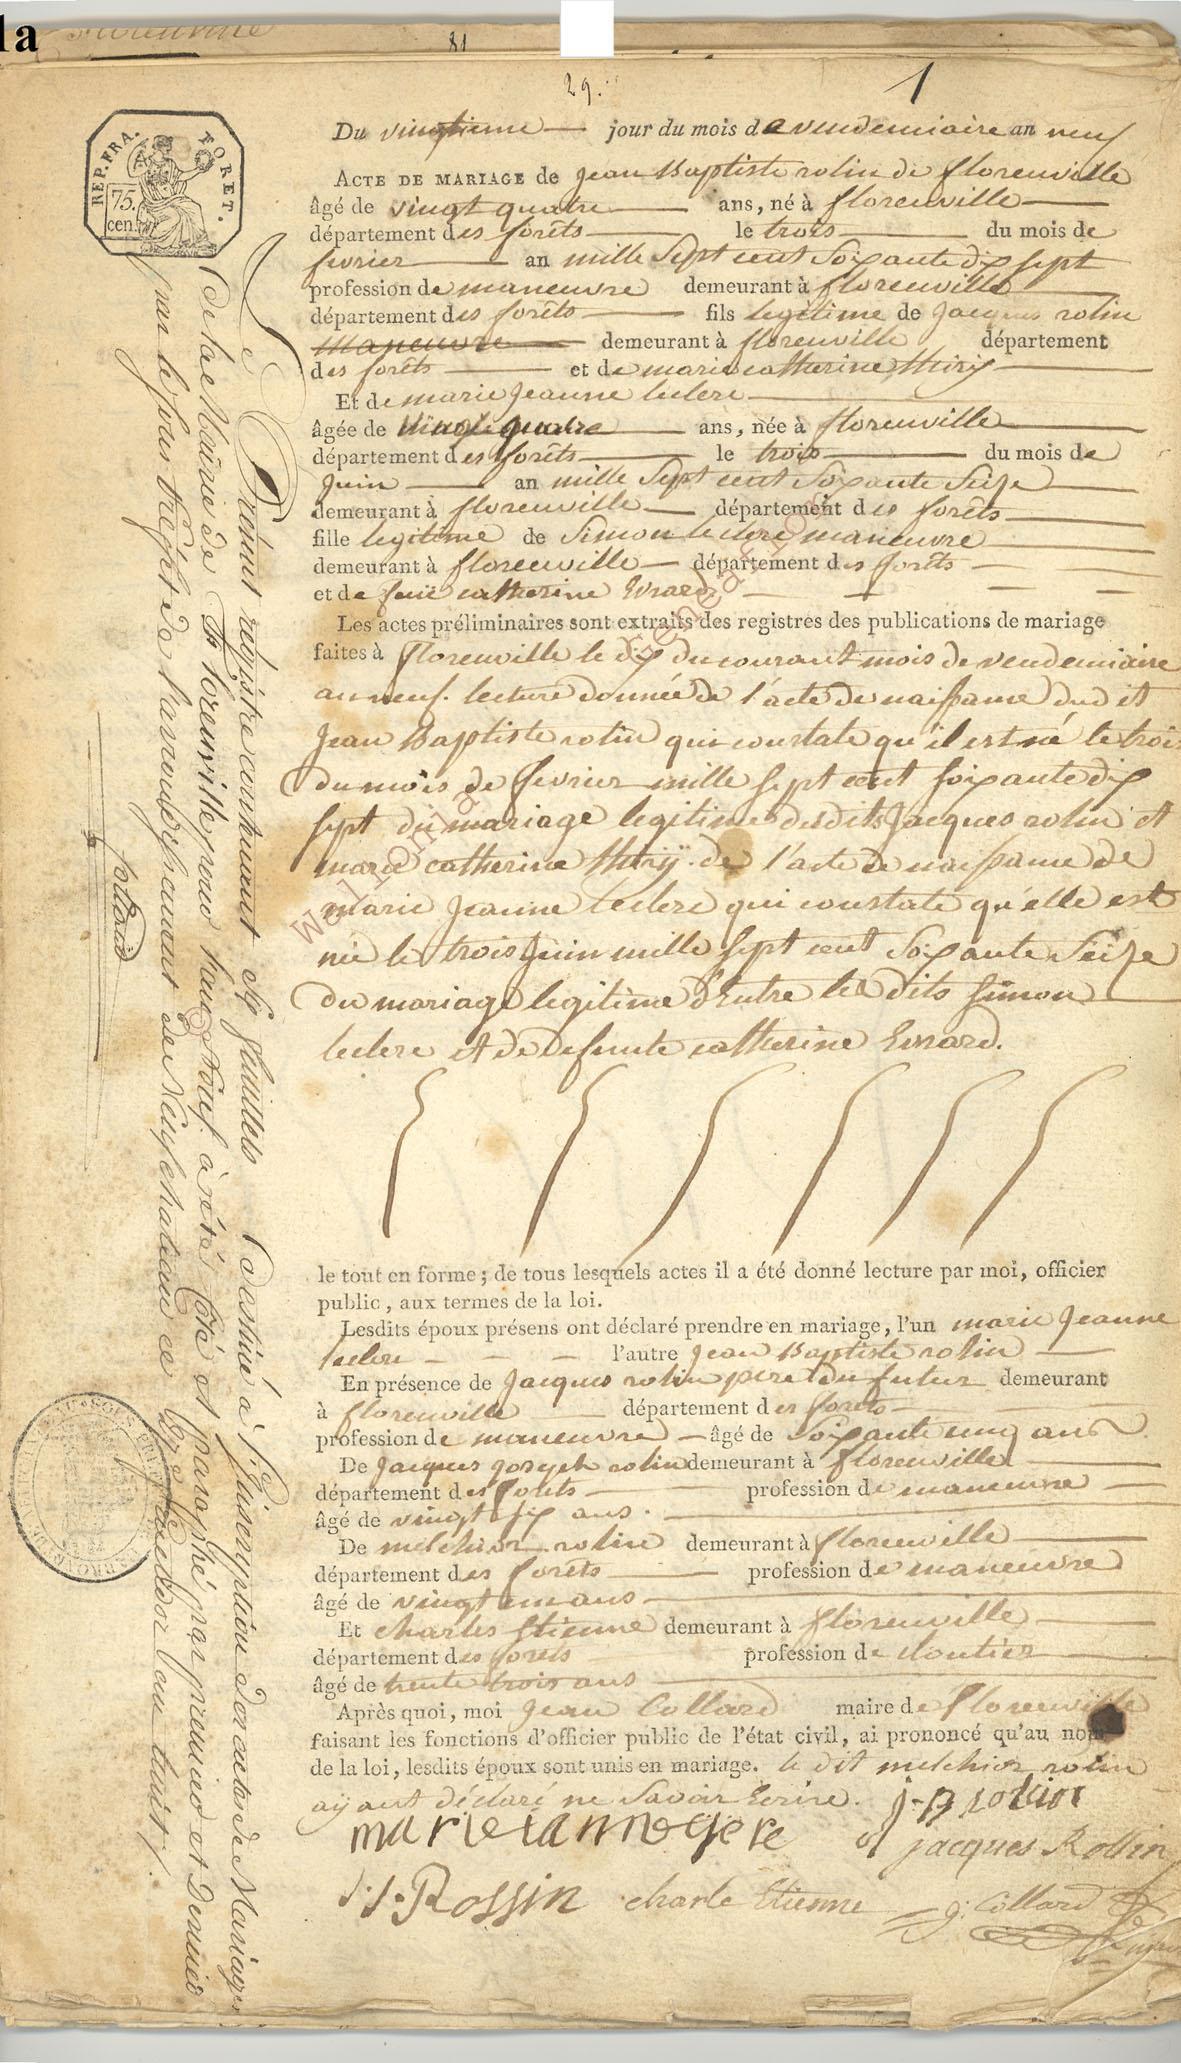 1a
81
29.
1
REP. FRA.
FORET.
75.
cen.
Du vingtieme jour du mois de vendemiaire an neuf
ACTE DE MARIAGE de jean Baptiste rolin de florenville
âgé de vingt quatre ans, né à florenville
département des forêts le trois du mois de
fevrier an mille sept cent soixante dix sept
profession de maneuvre demeurant à florenville
département des forêts fils legitime de Jacques rolin
maneuvre demeurant à florenville département
des forêts et de marie catherine thiry
Et de marie Jeanne leclere
âgée de vingt quatre ans, née à florenville
département des forêts le trois du mois de
Juin an mille sept cent soixante seize
demeurant à florenville département des forêts
fille legitime de Simon leclere maneuvre
demeurant à florenville département des forêts
et de feuë catherine Evrard
Les actes préliminaires sont extraits des registres des publications de mariage
faites à florenville le dix du courant mois de vendemiaire
an neuf. lecture donnée de l'acte de naissance dud et
Jean Baptiste rolin qui constate qu'il est né le trois
du mois de fevrier mille sept cent soixante dix
sept du mariage legitime desdits Jacques rolin et
marie catherine thiry. de l'acte de naissance de
marie Jeanne leclere qui constate qu'elle est
née le trois Juin mille sept cent soixante seize
du mariage legitime d'Entre les dits simon
leclere et de defunte catherine Evrard.
le tout en forme ; de tous lesquels actes il a été donné lecture par moi, officier
public, aux termes de la loi.
Lesdits époux présens ont déclaré prendre en mariage, l'un marie Jeanne
leclere l'autre Jean Baptiste rolin
En présence de Jacques rolin pere du futur demeurant
à florenville département des forets
profession de maneuvre âgé de soixante cinq ans
De Jacques joseph rolin demeurant à florenville
département des forêts profession de maneuvre
âgé de vingt six ans.
De melchior rolin demeurant à florenville
département des forêts profession de maneuvre
âgé de vingt un ans
Et charles Etienne demeurant à florenville
département des forêts profession de cloutier
âgé de trente trois ans
Après quoi, moi Jean Collard maire de florenville
faisant les fonctions d'officier public de l'état civil, ai prononcé qu'au nom
de la loi, lesdits époux sont unis en mariage. le dit melchior rolin
aÿant déclaré ne savoir Ecrire. j-B rolin
jacques Rollin
j.j. Rossin charle Etienne g: Collard
Le Présent régistre contenant six feuillets destiné à l'Inscription des actes de Mariages
de la Mairie de Florenville pour l'an neuf. à été Coté et paraphé par premier et Dernier
par le sous Préfet de l'arrondissement de Neufchateau ce
collard